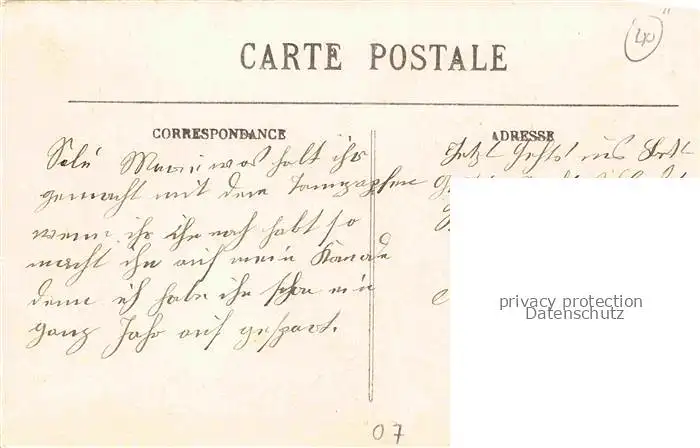 40
CARTE POSTALE
CORRESPONDANCE
ADRESSE
Marie was habt ihr
gemacht mit dem Tannzapfen
wenn ihr ihn noch habt so
macht ihn auf mein
denn ich habe ihn schon ein
ganz Jahr auf gespart.
Jetzt gehts ins Bett
privacy protection
Datenschutz
07